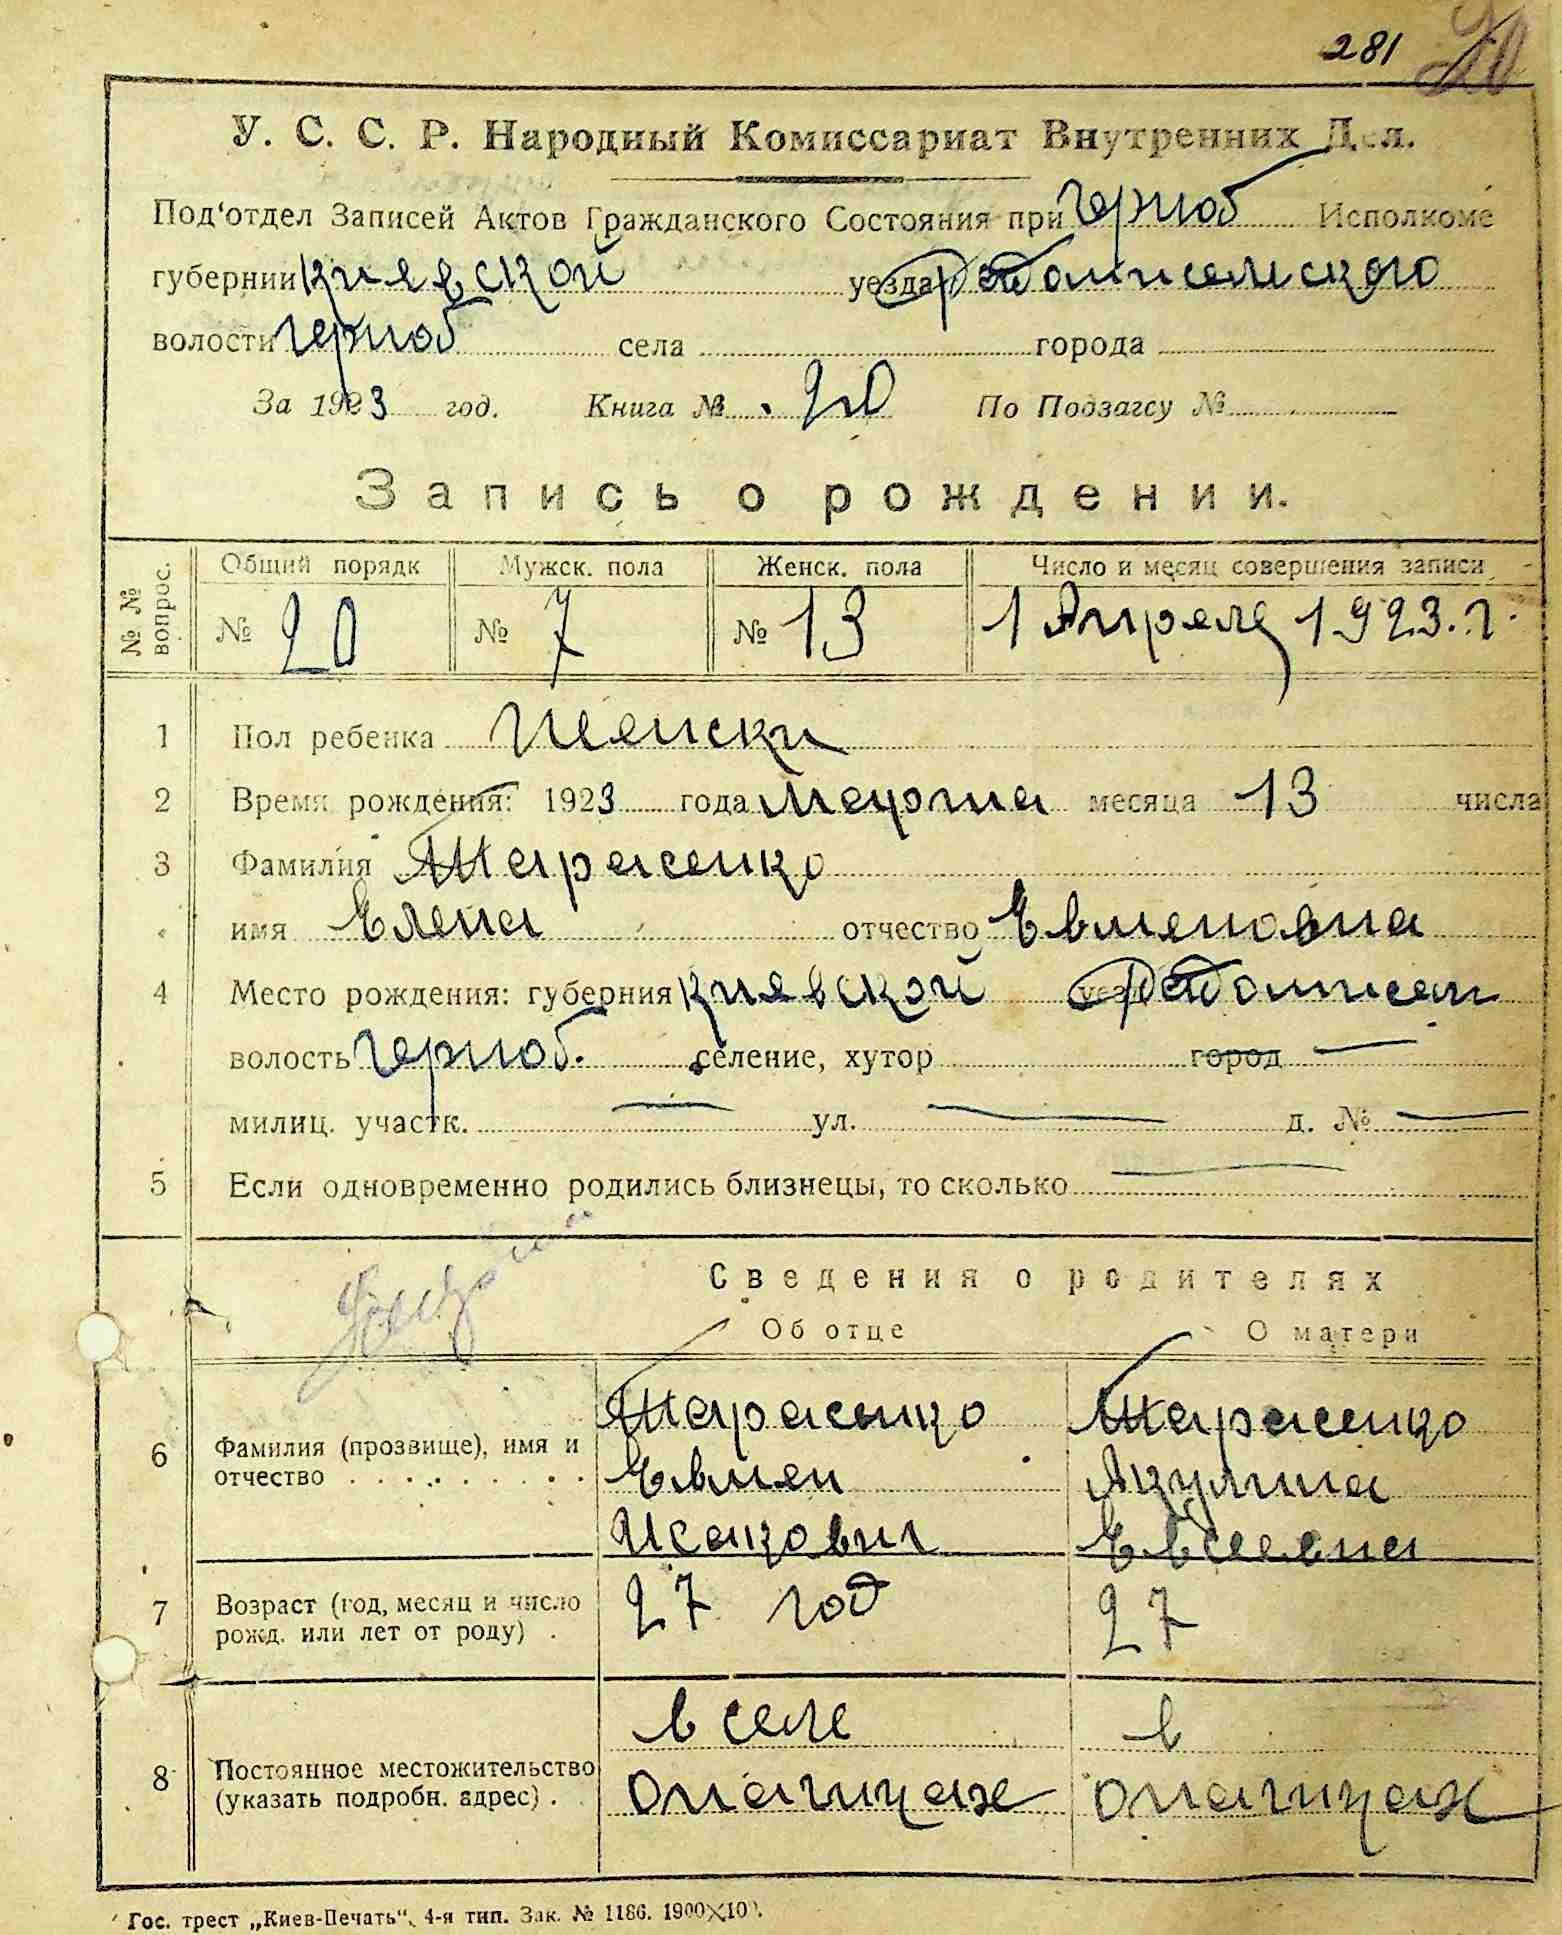 281 20
У. С. С. Р. Народный Комиссариат Внутренних Дел.
Под'отдел Записей Актов Гражданского Состояния при Черноб Исполкоме
губернии Киевской уезда Радомисельского
волости Черноб села города
За 1923 год. Книга № 20 По Подзагсу №
Запись о рождении.
№ № вопрос. Общий порядк Мужск. пола Женск. пола Число и месяц совершения записи
№ 20 № 7 № 13 1 Апреля 1923. г.
1 Пол ребенка Женски
2 Время рождения: 1923 года Марта месяца 13 числа
3 Фамилия Тарасенко
имя Елена отчество Евменовна
4 Место рождения: губерния Киевской уезд Радомисел
волость Черноб. селение, хутор город —
милиц. участк. — ул. — д. № —
5 Если одновременно родились близнецы, то сколько —
Сведения о родителях
Об отце О матери
Тарасенко Тарасенко
6 Фамилия (прозвище), имя и отчество Евмен Акулина
Исакович Евсеевна
7 Возраст (год, месяц и число рожд. или лет от роду) 27 год 27
в селе в
8 Постоянное местожительство (указать подробн. адрес) Опачичах Опачичах
Гос. трест „Киев-Печать“, 4-я тип. Зак. № 1186. 1900×100.